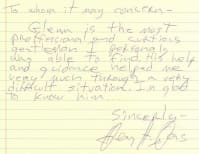 To whom it may concern-
Glenn is the most
proffessional and curtious
gentleman I personaly
was able to find, his help
and guidance helped me
very much through a very
difficult situation. I'm glad
to know him...
Sincerely-